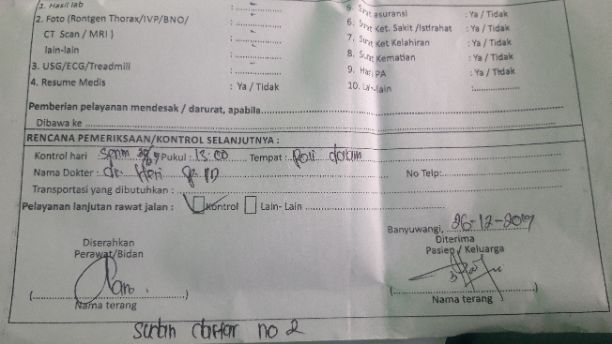 1. Hasil lab : ............
2. Foto (Rontgen Thorax/IVP/BNO/
CT Scan / MRI ) : ............
lain-lain : ............
3. USG/ECG/Treadmill : ............
4. Resume Medis : Ya / Tidak
asuransi : Ya / Tidak
6. Surat Ket. Sakit /Istirahat : Ya / Tidak
7. Surat Ket Kelahiran : Ya / Tidak
8. Surat Kematian : Ya / Tidak
9. Hasil PA : Ya / Tidak
10. Lain-lain :............
Pemberian pelayanan mendesak / darurat, apabila............
Dibawa ke ............
RENCANA PEMERIKSAAN/KONTROL SELANJUTNYA :
Kontrol hari : Senin Pukul : 13.00 Tempat : Poli dalam
Nama Dokter : dr. Heri No Telp:............
Transportasi yang dibutuhkan : ............
Pelayanan lanjutan rawat jalan : Kontrol Lain- Lain ............
Banyuwangi, 26-12-2019
Diserahkan
Perawat/Bidan
Diterima
Pasien / Keluarga
(............)
Nama terang
(............)
Nama terang
daftar no 2